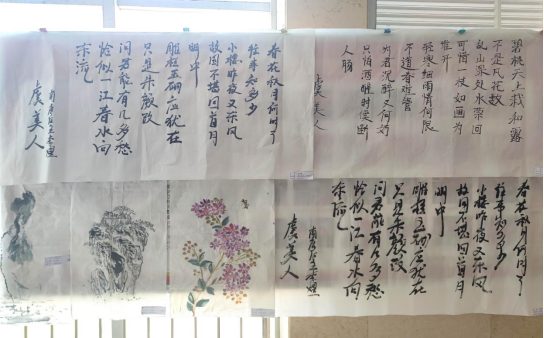 碧桃天上栽和露
不是凡花数
乱山深处水萦回
可惜一枝如画为
谁开
轻寒细雨情何限
不道春难管
为君沉醉又何妨
只怕酒醒时候断
人肠
虞美人
春花秋月何时了
往事知多少
小楼昨夜又东风
故国不堪回首月
明中
雕栏玉砌应犹在
只是朱颜改
问君能有几多愁
恰似一江春水向
东流
南唐后主李煜
虞美人
春花秋月何时了
往事知多少
小楼昨夜又东风
故国不堪回首月
明中
雕栏玉砌应犹在
只是朱颜改
问君能有几多愁
恰似一江春水向
东流
南唐后主李煜
虞美人